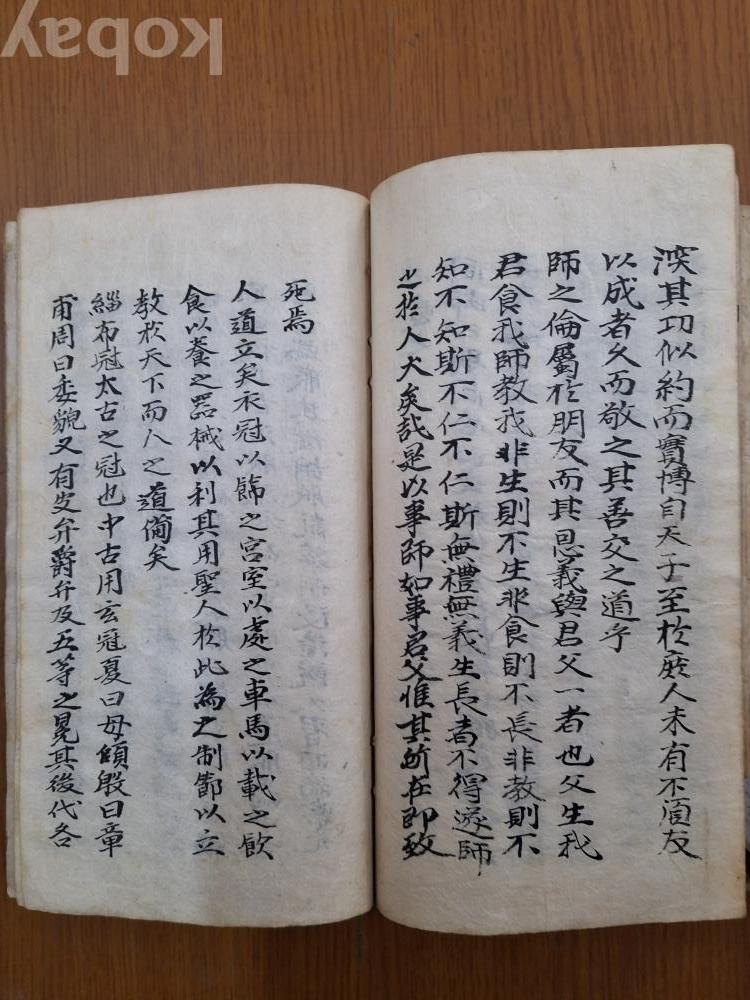 深其功似約而實博自天子至於庶人未有不須友
以成者久而敬之其善交之道乎
師之倫屬於朋友而其恩義與君父一者也父生我
君食我師教我非生則不生非食則不長非教則不
知不知斯不仁不仁斯無禮無義生長者不得遂師
之於人大矣哉是以事師如事君父惟其所在卽致
死焉
人道立矣衣冠以飾之宮室以處之車馬以載之飮
食以養之器械以利其用聖人於此為之制節以立
教於天下而人之道備矣
緇布冠太古之冠也中古用玄冠夏曰毋傾殷曰章
甫周曰委貌又有皮弁爵弁及五等之冕其後代各
kobay